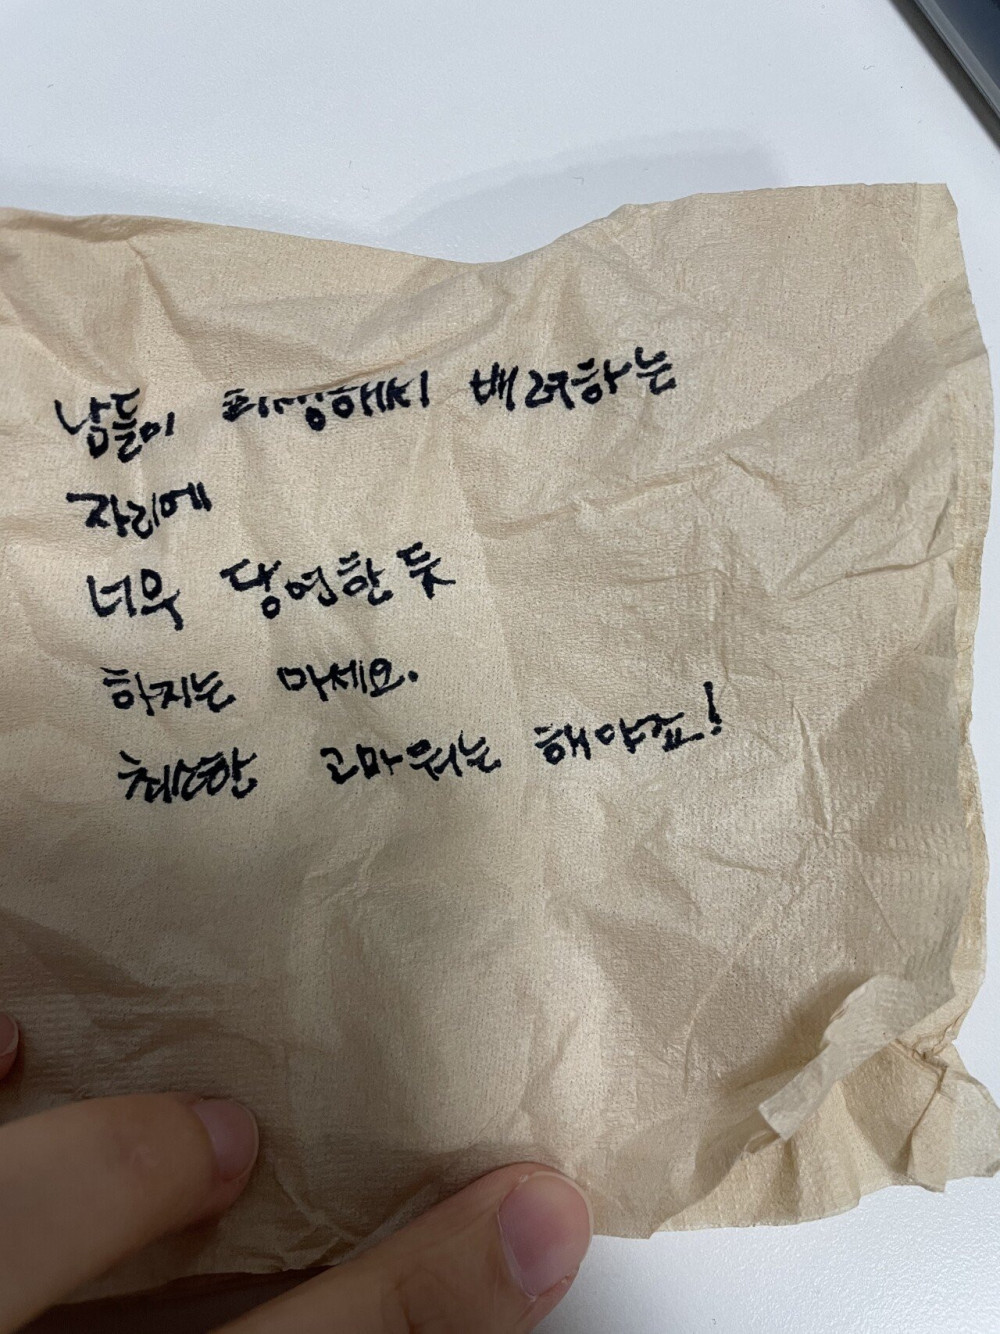 남들이 희생해서 배려하는
자리에
너무 당연한 듯
하지는 마세요.
최소한 고마워는 해야죠!